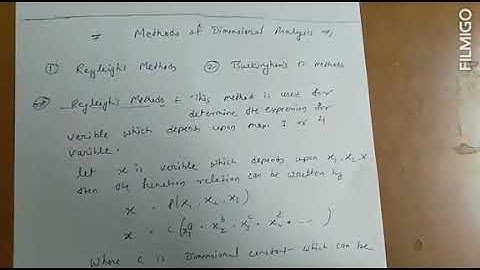 Methods of Dimensional Analysis
① Rayleigh's Methods ② Buckingham's π methods
Rayleigh's Methods :- This method is used for
determine the expression for
verible which depends upon maxm 3 or 4
varible.
Let x is verible which depends upon x₁, x₂, x
then the function relation can be written by
x = f(x₁, x₂, x₃)
x = C (x₁ᵃ · x₂ᵇ · x₃ᶜ · x₄ᵈ · ---)
Where C is Dimensional constant which can be
FILMIGO